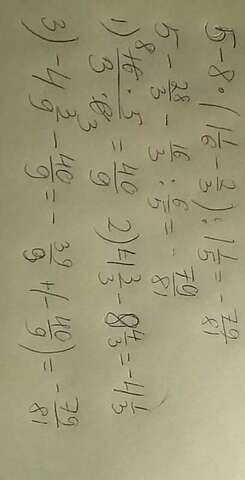 5-8·(1 1/6 - 2/3) : 1 1/5 = - 79/81
5 - 28/3 - 16/3 : 6/5 = - 79/81
1) 16·5/3·6 = 40/9 2) = -4 1/3
3) -4 3/9 - 40/9 = - 39/9 + (- 40/9) = - 79/81